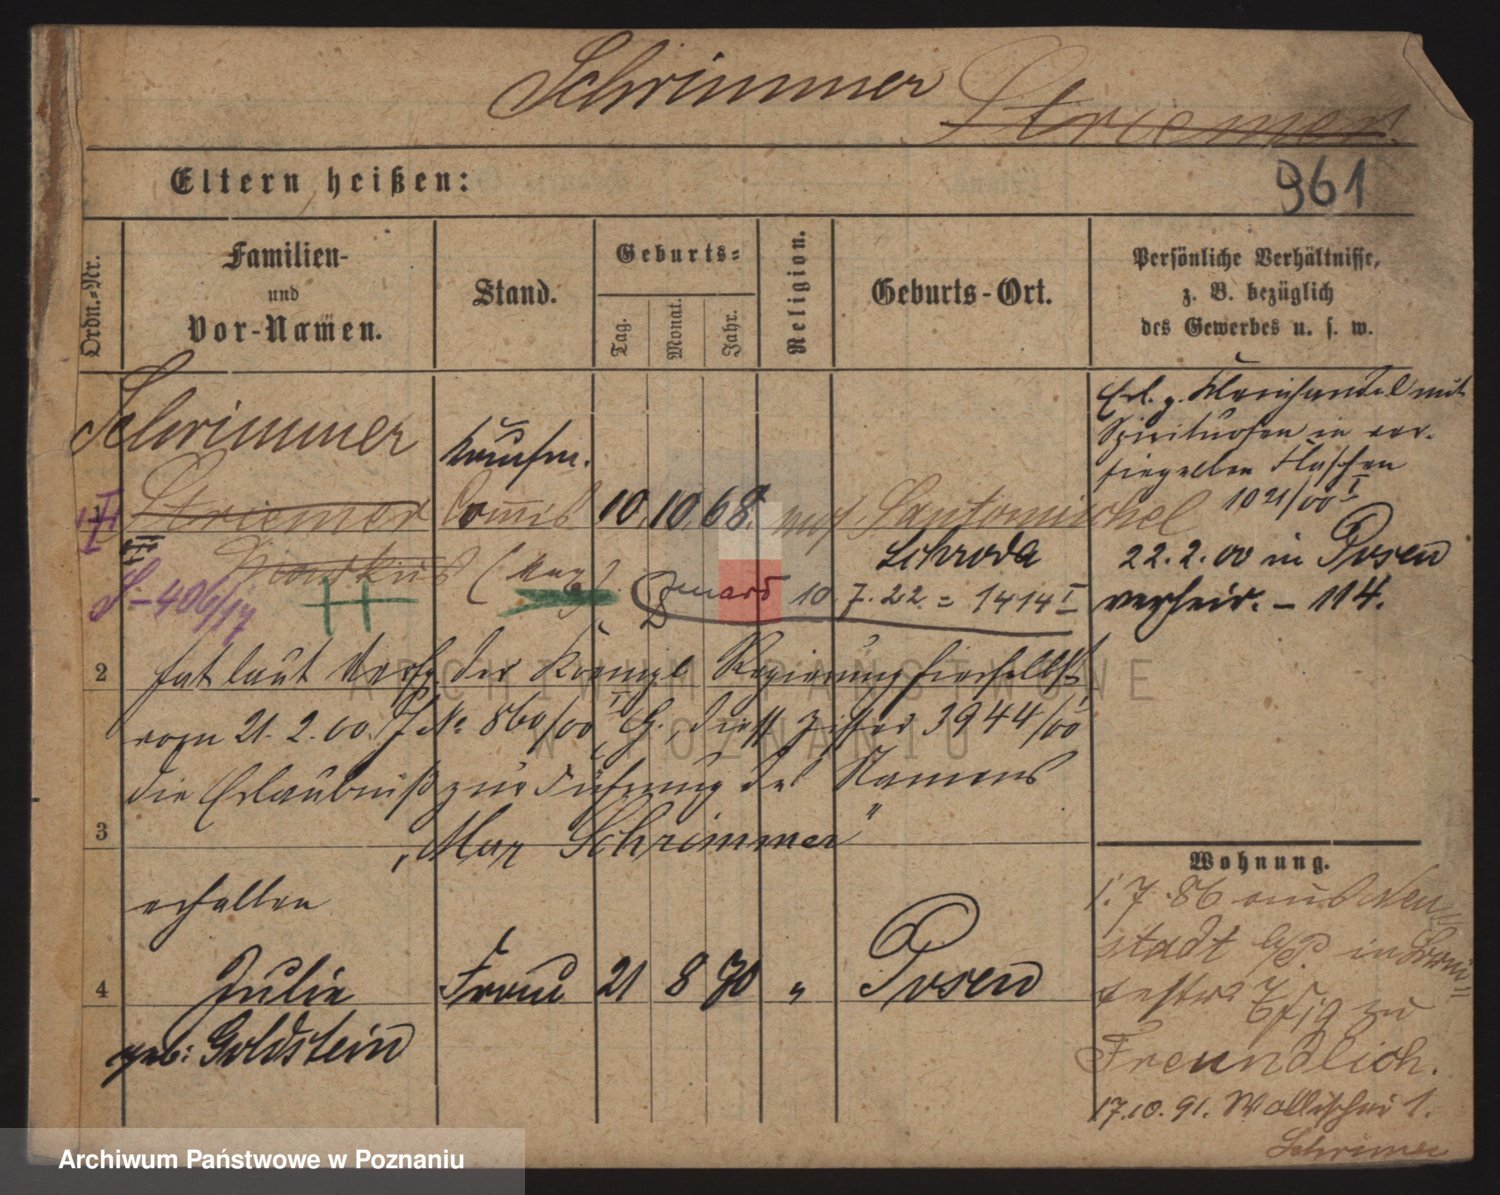 Schrimmer Striemer.
961
Eltern heißen:
Ordn.-Nr.
Familien-
und
Vor-Namen.
Stand.
Geburts-
Tag.
Monat.
Jahr.
Religion.
Geburts-Ort.
Persönliche Verhältnisse,
z. B. bezüglich
des Gewerbes u. s. w.
Erl. z. Kleinhandel mit
Spirituosen in ver-
siegelten Flaschen
1021/00 I
22.2.00 in Posen
verheir. - 114.
Schrimmer
Kaufm.
1
Striemer Commis 10. 10. 68. Santomischel
Schroda
Markus (Max)
III
S-406/17
10.7.22 = 1414 I
2
hat laut Verfg. der Königl. Regierung hierselbst
vom 21.2.00. J No 860/00 I G., diess. Ziffer 3944/00
die Erlaubniß zur Führung des Namens
3
„Max Schrimmer"
erhalten
4
Julie Frau 21 8 70 " Posen
geb: Goldstein
Wohnung.
1.7.86 aus Neu
stadt b/P in
zu
Freundlich.
17.10.91. Wallischei 1.
Schrimer
ARCHIWUM PAŃSTWOWE
W POZNANIU
Archiwum Państwowe w Poznaniu